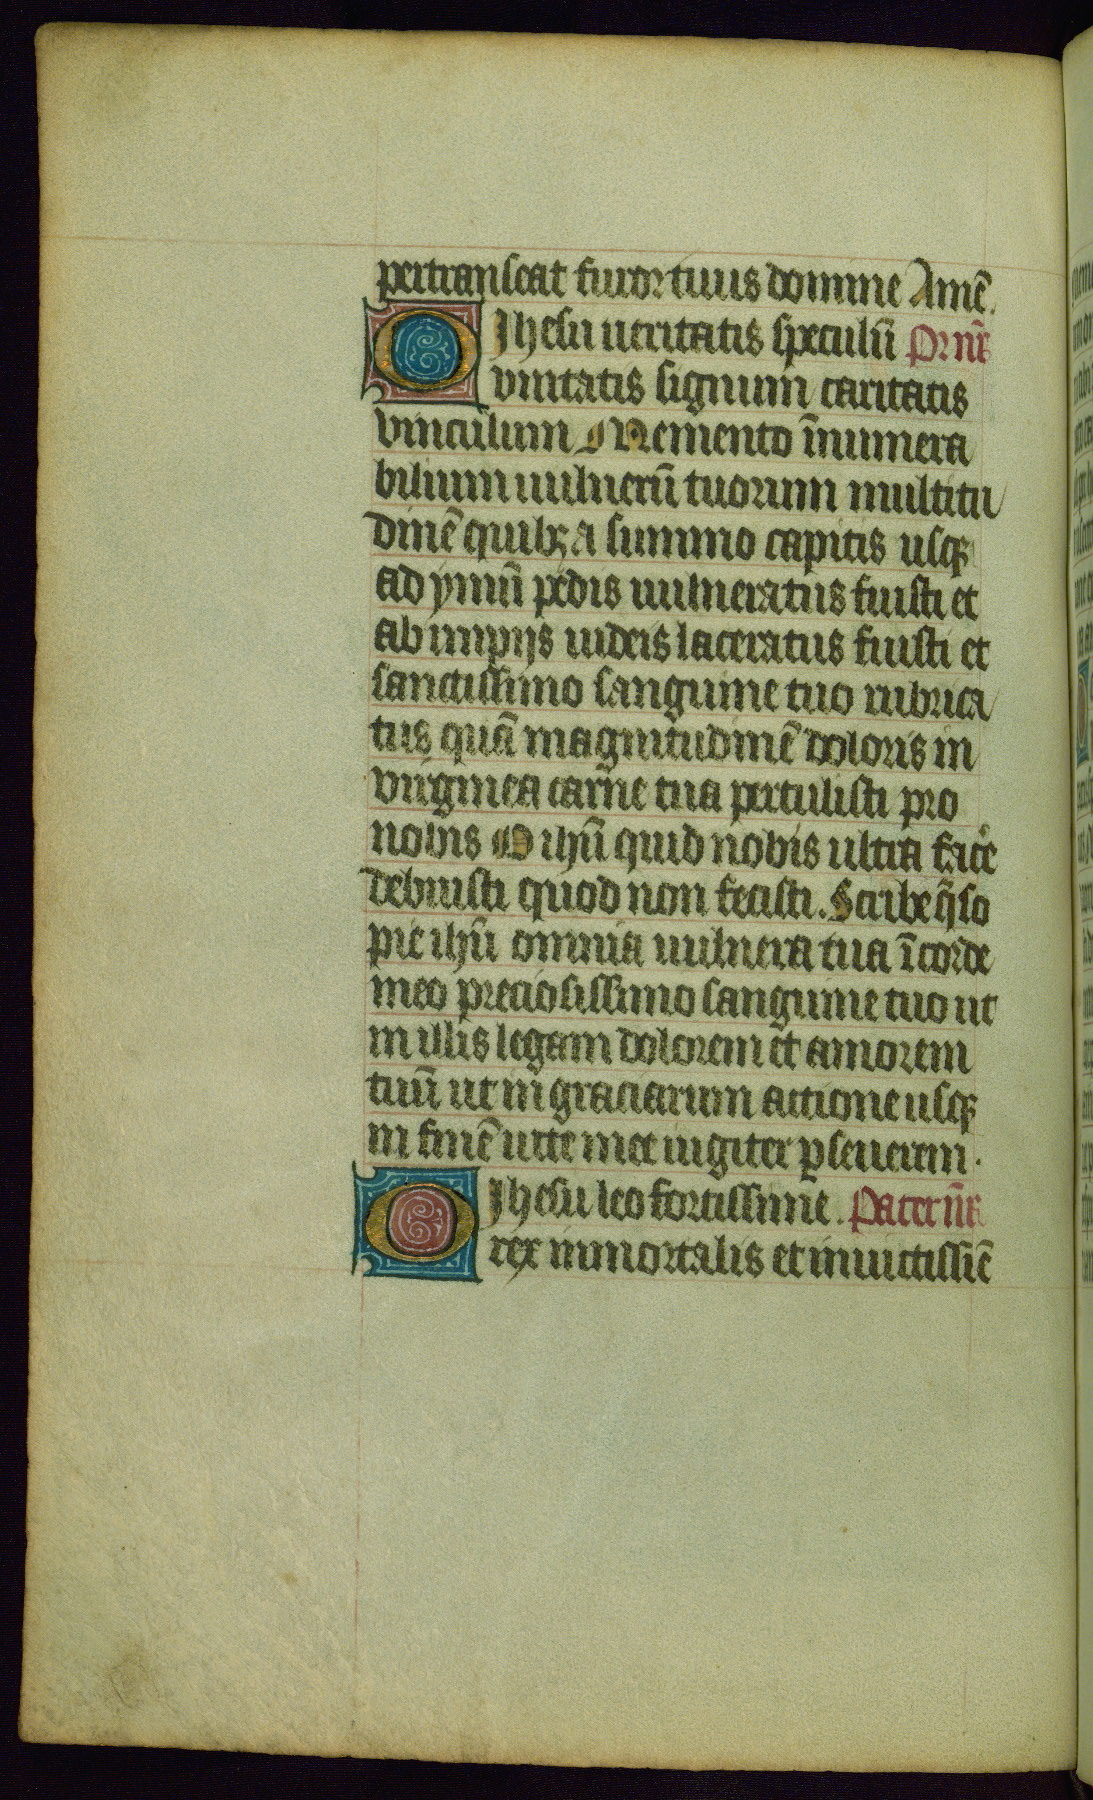 pertranseat furor tuus domine Amē.
O Jhesu ueritatis speculū Pr nr̄
vnitatis signum caritatis
vinculum Memento īnumera
bilium uulnerū tuorum multitu
dinē quibꝫ a summo capitis usqꝫ
ad ymū pedis uulneratus fuisti et
ab impijs iudeis laceratus fuisti et
sanctissimo sanguine tuo rubrica
tus quā magnitudinē doloris in
virginea carne tua pertulisti pro
nobis O ihū quid nobis ultra facē
debuisti quod non fecisti. Scribe q̄so
pie ihū omnia uulnera tua ī corde
meo preciosissimo sanguine tuo ut
in illis legam dolorem et amorem
tuū ut in graciarum actione usqꝫ
in finē uite mee iugiter ꝑseuerem.
O Jhesu leo fortissime. Pater nr̄
rex immortalis et inuictissiē